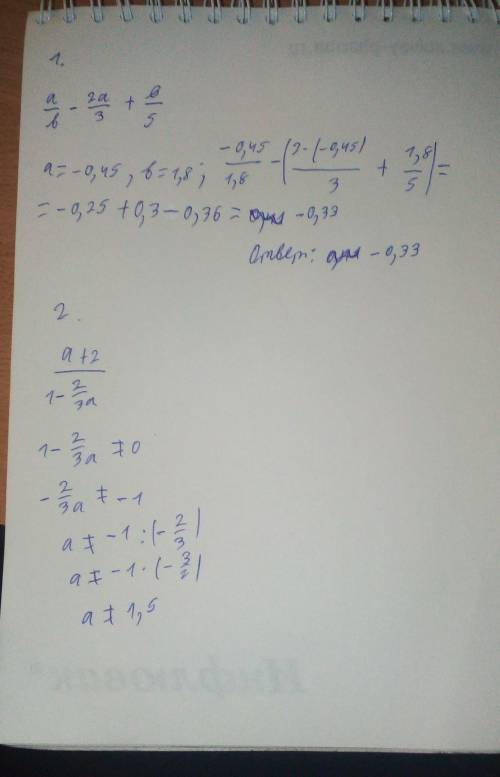 1.
a/в - 2a/3 + в/5
a = -0,45, в = 1,8; -0,45/1,8 - (2·(-0,45)/3 + 1,8/5) =
= -0,25 + 0,3 - 0,36 = -0,33
Ответ: -0,33
2.
a+2 / 1 - 2/3a
1 - 2/3a ≠ 0
- 2/3a ≠ -1
a ≠ -1 : (- 2/3)
a ≠ -1 · (- 3/2)
a ≠ 1,5
Инфлювак®